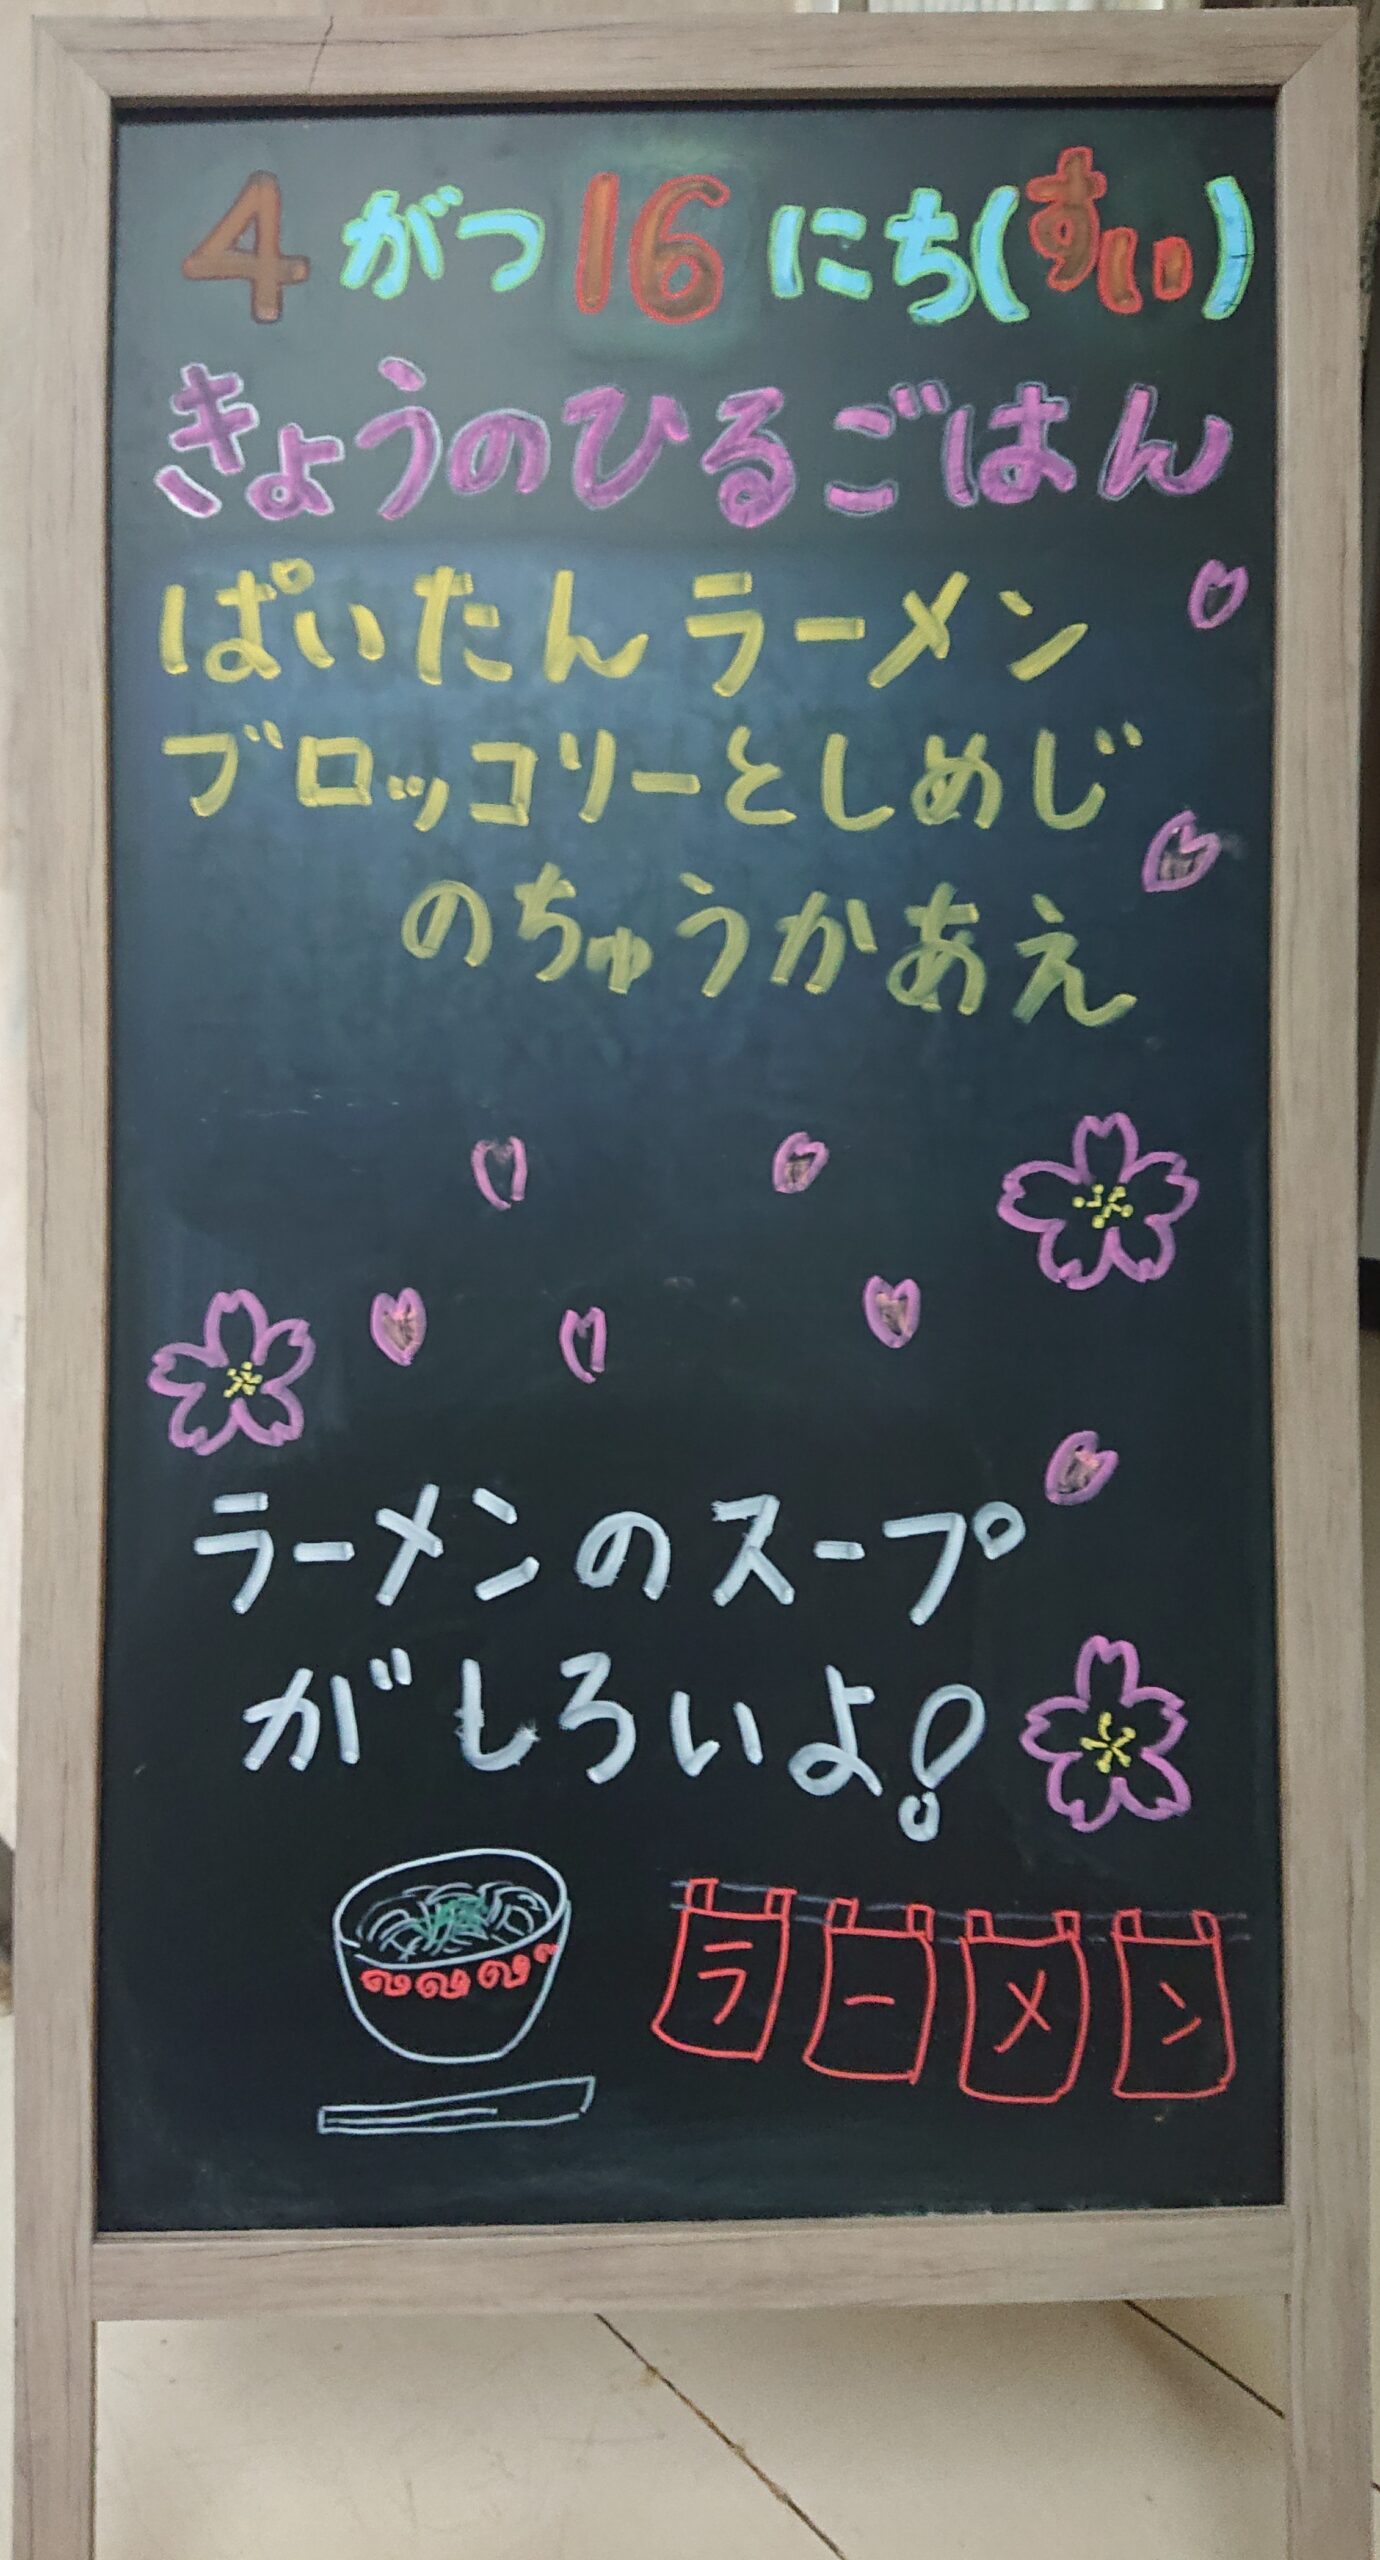 4がつ16にち(すい)
きょうのひるごはん
ぱいたんラーメン
ブロッコリーとしめじ
のちゅうかあえ
ラーメンのスープ
がしろいよ!
ラーメン